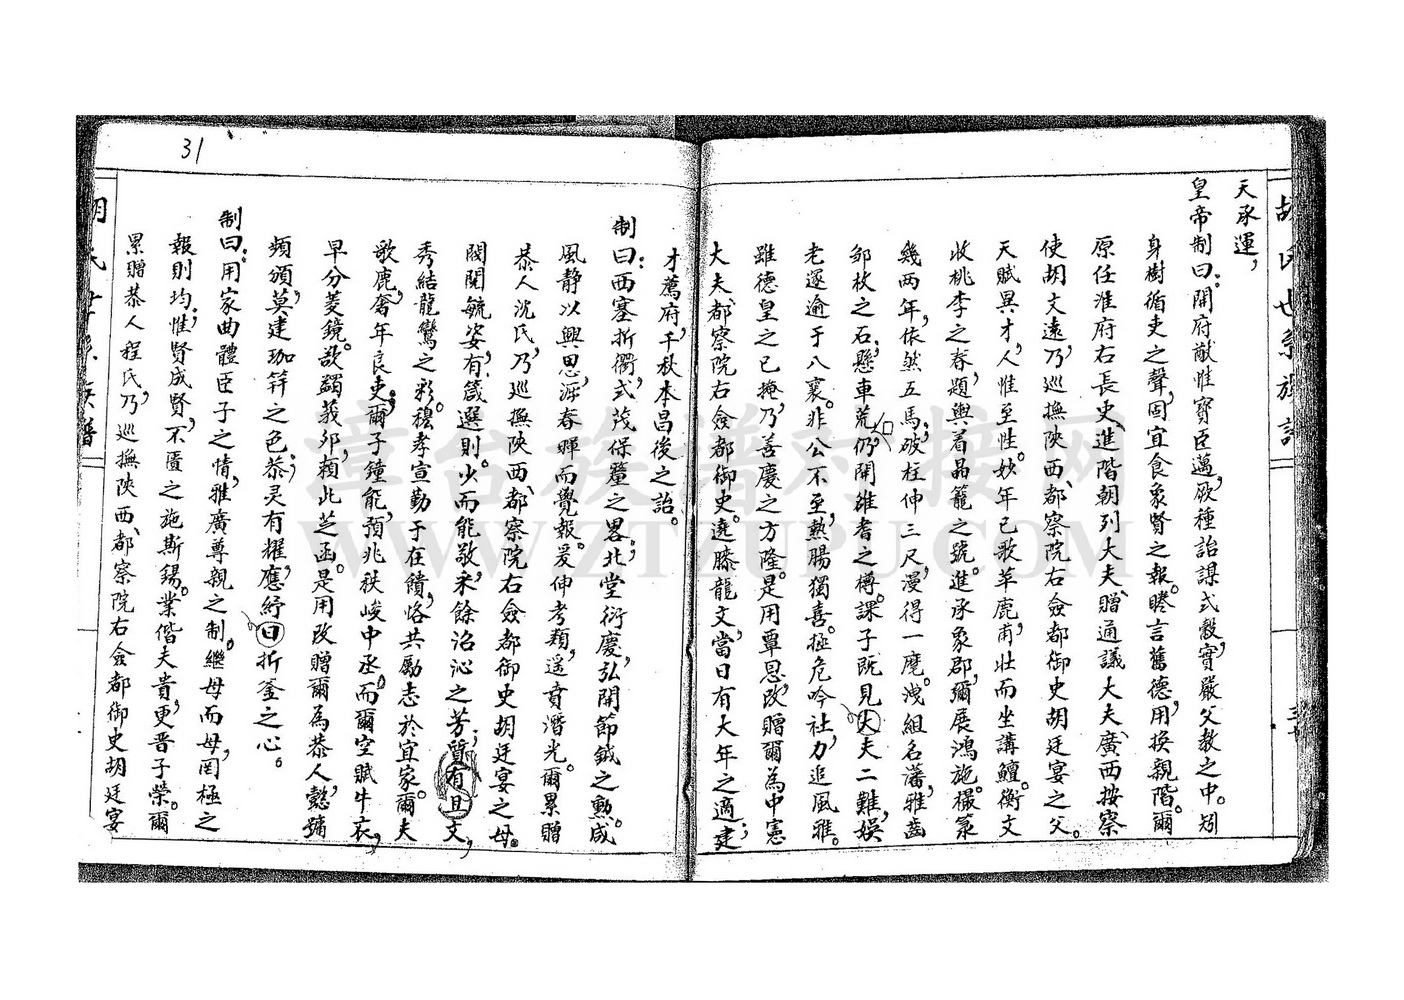 胡氏世系族譜
天承運，
皇帝制曰：開府猷惟寶臣邁，厥種詒謀式穀，實嚴父教之中。矧
身樹循吏之聲，固宜食象賢之報。睠言舊德，用換親階。爾
原任淮府右長史，進階朝列大夫，贈通議大夫，廣西按察
使胡文遠，乃巡撫陝西、都察院右僉都御史胡廷宴之父。
天賦異才，人惟至性。妙年已歌苹鹿，甫壯而坐講鱣。衡文
收桃李之春，題輿着品籠之號。進承象郡，彌展鴻施。撮篆
幾兩年，依然五馬；破柱伸三尺，漫得一麾。洩組名藩，雅齒
鄒枚之石；懸車荒仍，開雒耆之樽。課子既見大夫二難，娛
老遂逾于八襄。非公不至，熱腸獨喜。拯危吟社，力追風雅。
雖德皇之已掩，乃善慶之方隆。是用覃恩，改贈爾為中憲
大夫、都察院右僉都御史。遶膝龍文，當日有大年之適；建
才薦府，千秋本昌後之詒。
制曰：西塞折衝，式茂保釐之畧。北堂衍慶，弘開節鉞之勳。咸
風靜以興思，滛春暉而覺報。爰伸考類，遥賁潛光。爾累贈
恭人沈氏，乃巡撫陝西、都察院右僉都御史胡廷宴之母。
閥閱毓姿，有箴選則。少而能敬，永餘沼沁之芳；質有且文，
秀結龍鸞之彩。穆孝宣勤于在饋，恪共勵志於宜家。爾夫
歌鹿，奢年良吏；爾子鐘能，預兆秩峻中丞。而爾空賦牛衣，
早分菱鏡。欷蠲莪邜，賴此芝函。是用改贈爾為恭人，懿鏽
頻頒，莫建珈笄之色恭；灵有耀，應紓曰折釜之心。
制曰：用家曲體臣子之情，雅廣尊親之制。繼母而母，罔極之
報則均；惟賢成賢，不匱之施斯錫。業偕夫貴，更晋子榮。爾
累贈恭人程氏，乃巡撫陝西、都察院右僉都御史胡廷宴
31
漳台族譜对接网
WWW.ZTZUPU.COM